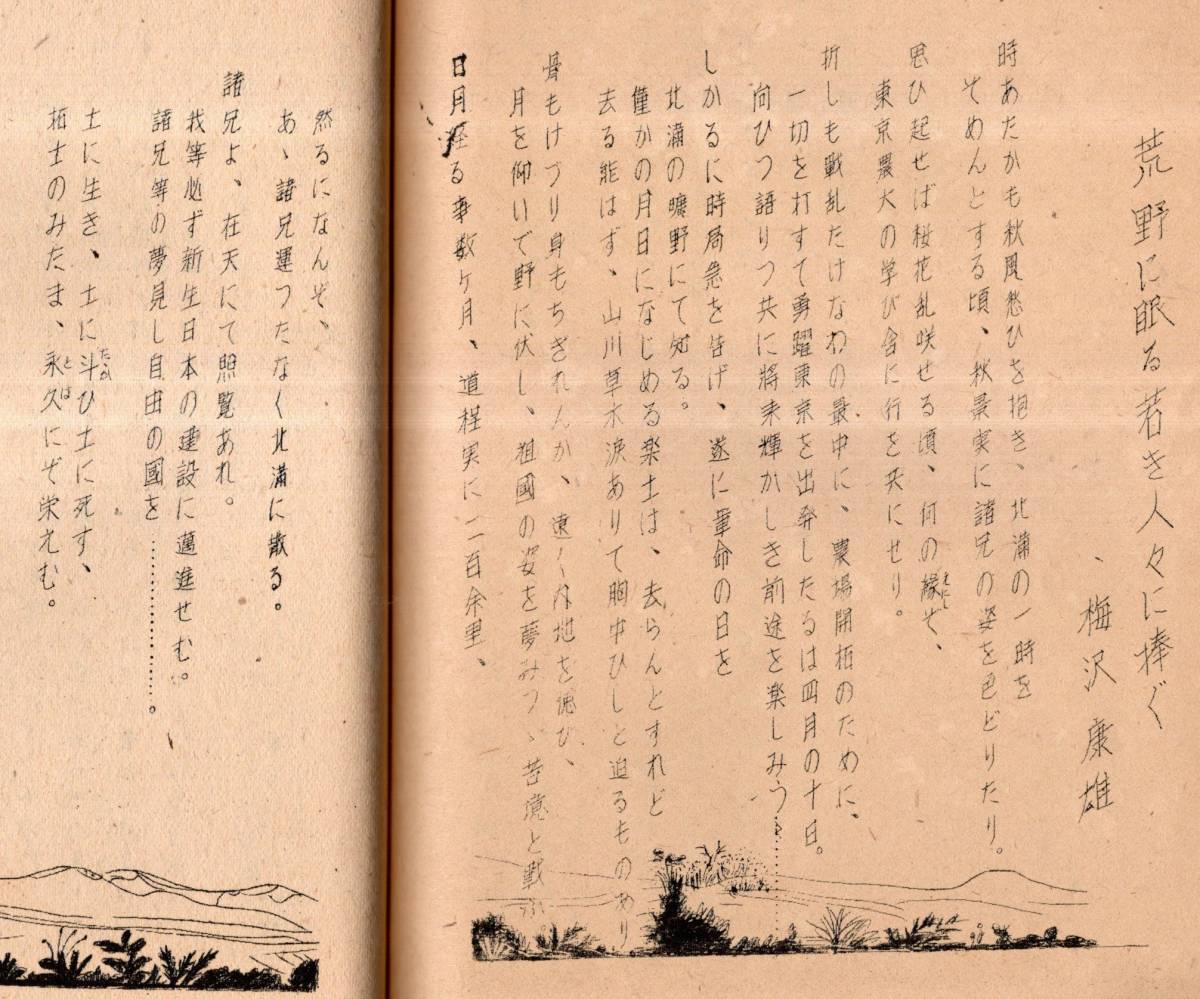 荒野に眠る若き人々に捧ぐ
梅沢 康雄
時あたかも秋風愁ひを抱き、北満の一時を
そめんとする頃、秋景実に諸兄の姿を色どりたり。
思ひ起せば桜花乱咲せる頃、何の縁ぞ、
えにし
東京農大の学び舎に行を共にせり。
折しも戦乱たけなわの最中に、農場開拓のために、
一切を打すて勇躍東京を出発したるは四月の十日。
向ひつ語りつ共に將来輝かしき前途を楽しみつ…………
北満の曠野にて 。
しかるに時局急を告げ、遂に革命の日を
僅かの月日になじめる楽土は、去らんとすれど
去る能はず、山川草木涙ありて胸中ひしと迫るものあり
骨もけづり身もちぎれんか、遠く内地を偲び、
月を仰いで野に伏し、祖國の姿を夢みつゝ苦 と戦ふ
日月経る事数ヶ月、道程実に二百余里、
然るになんぞ、
あゝ諸兄運つたなく北満に散る。
諸兄よ、在天にて照覧あれ。
我等必ず新生日本の建設に邁進せむ。
諸兄等の夢見し自由の國を…………。
土に生き、土に斗ひ土に死す、
たゝか
拓士のみたま、永久にぞ栄えむ。
とは